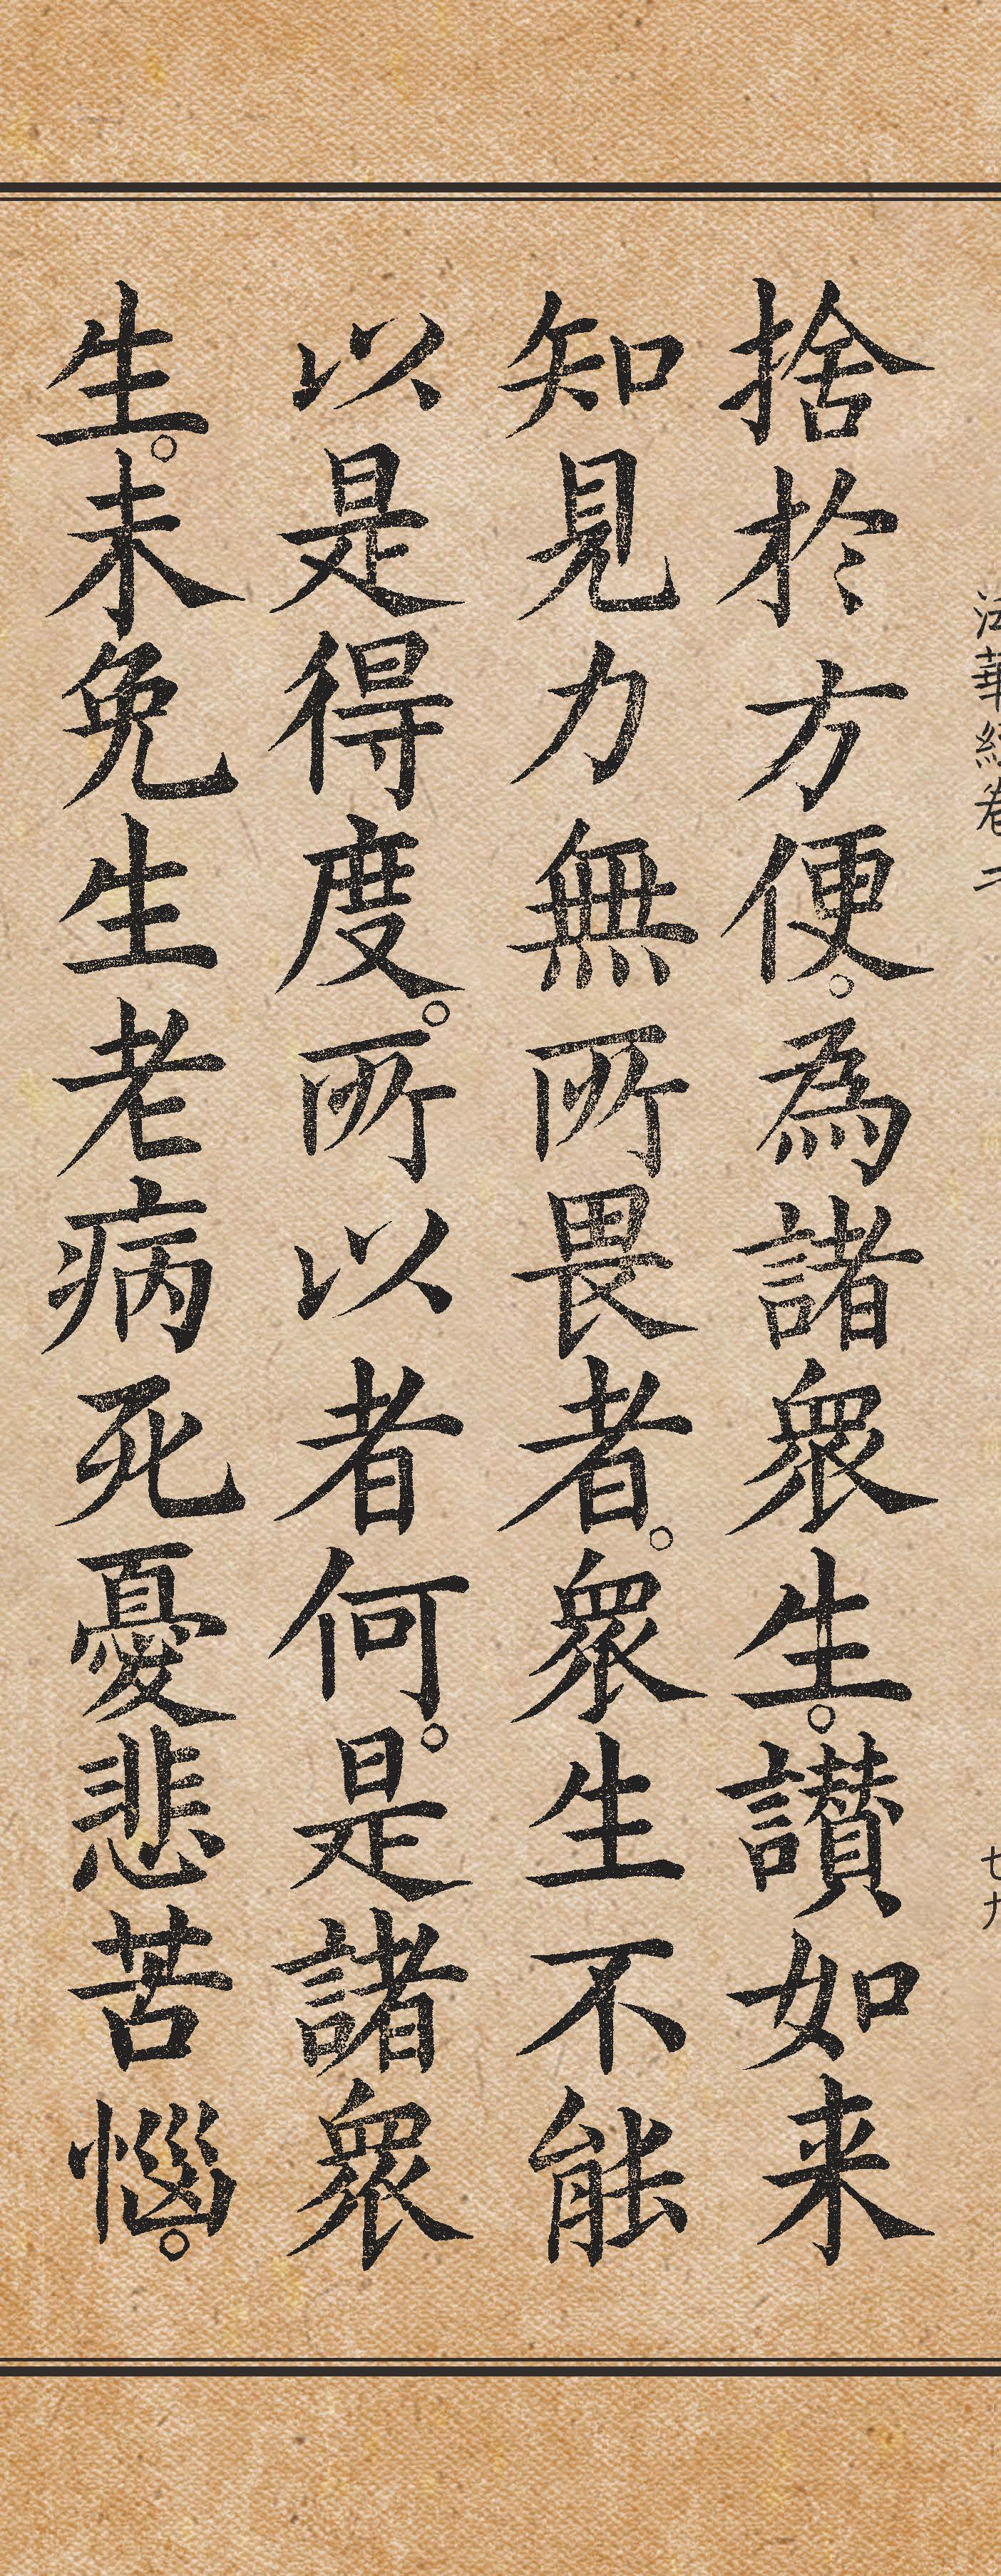 法華經卷二
七九
捨於方便。為諸眾生。讚如来
知見力無所畏者。眾生不能
以是得度。所以者何。是諸眾
生。未免生老病死憂悲苦惱。